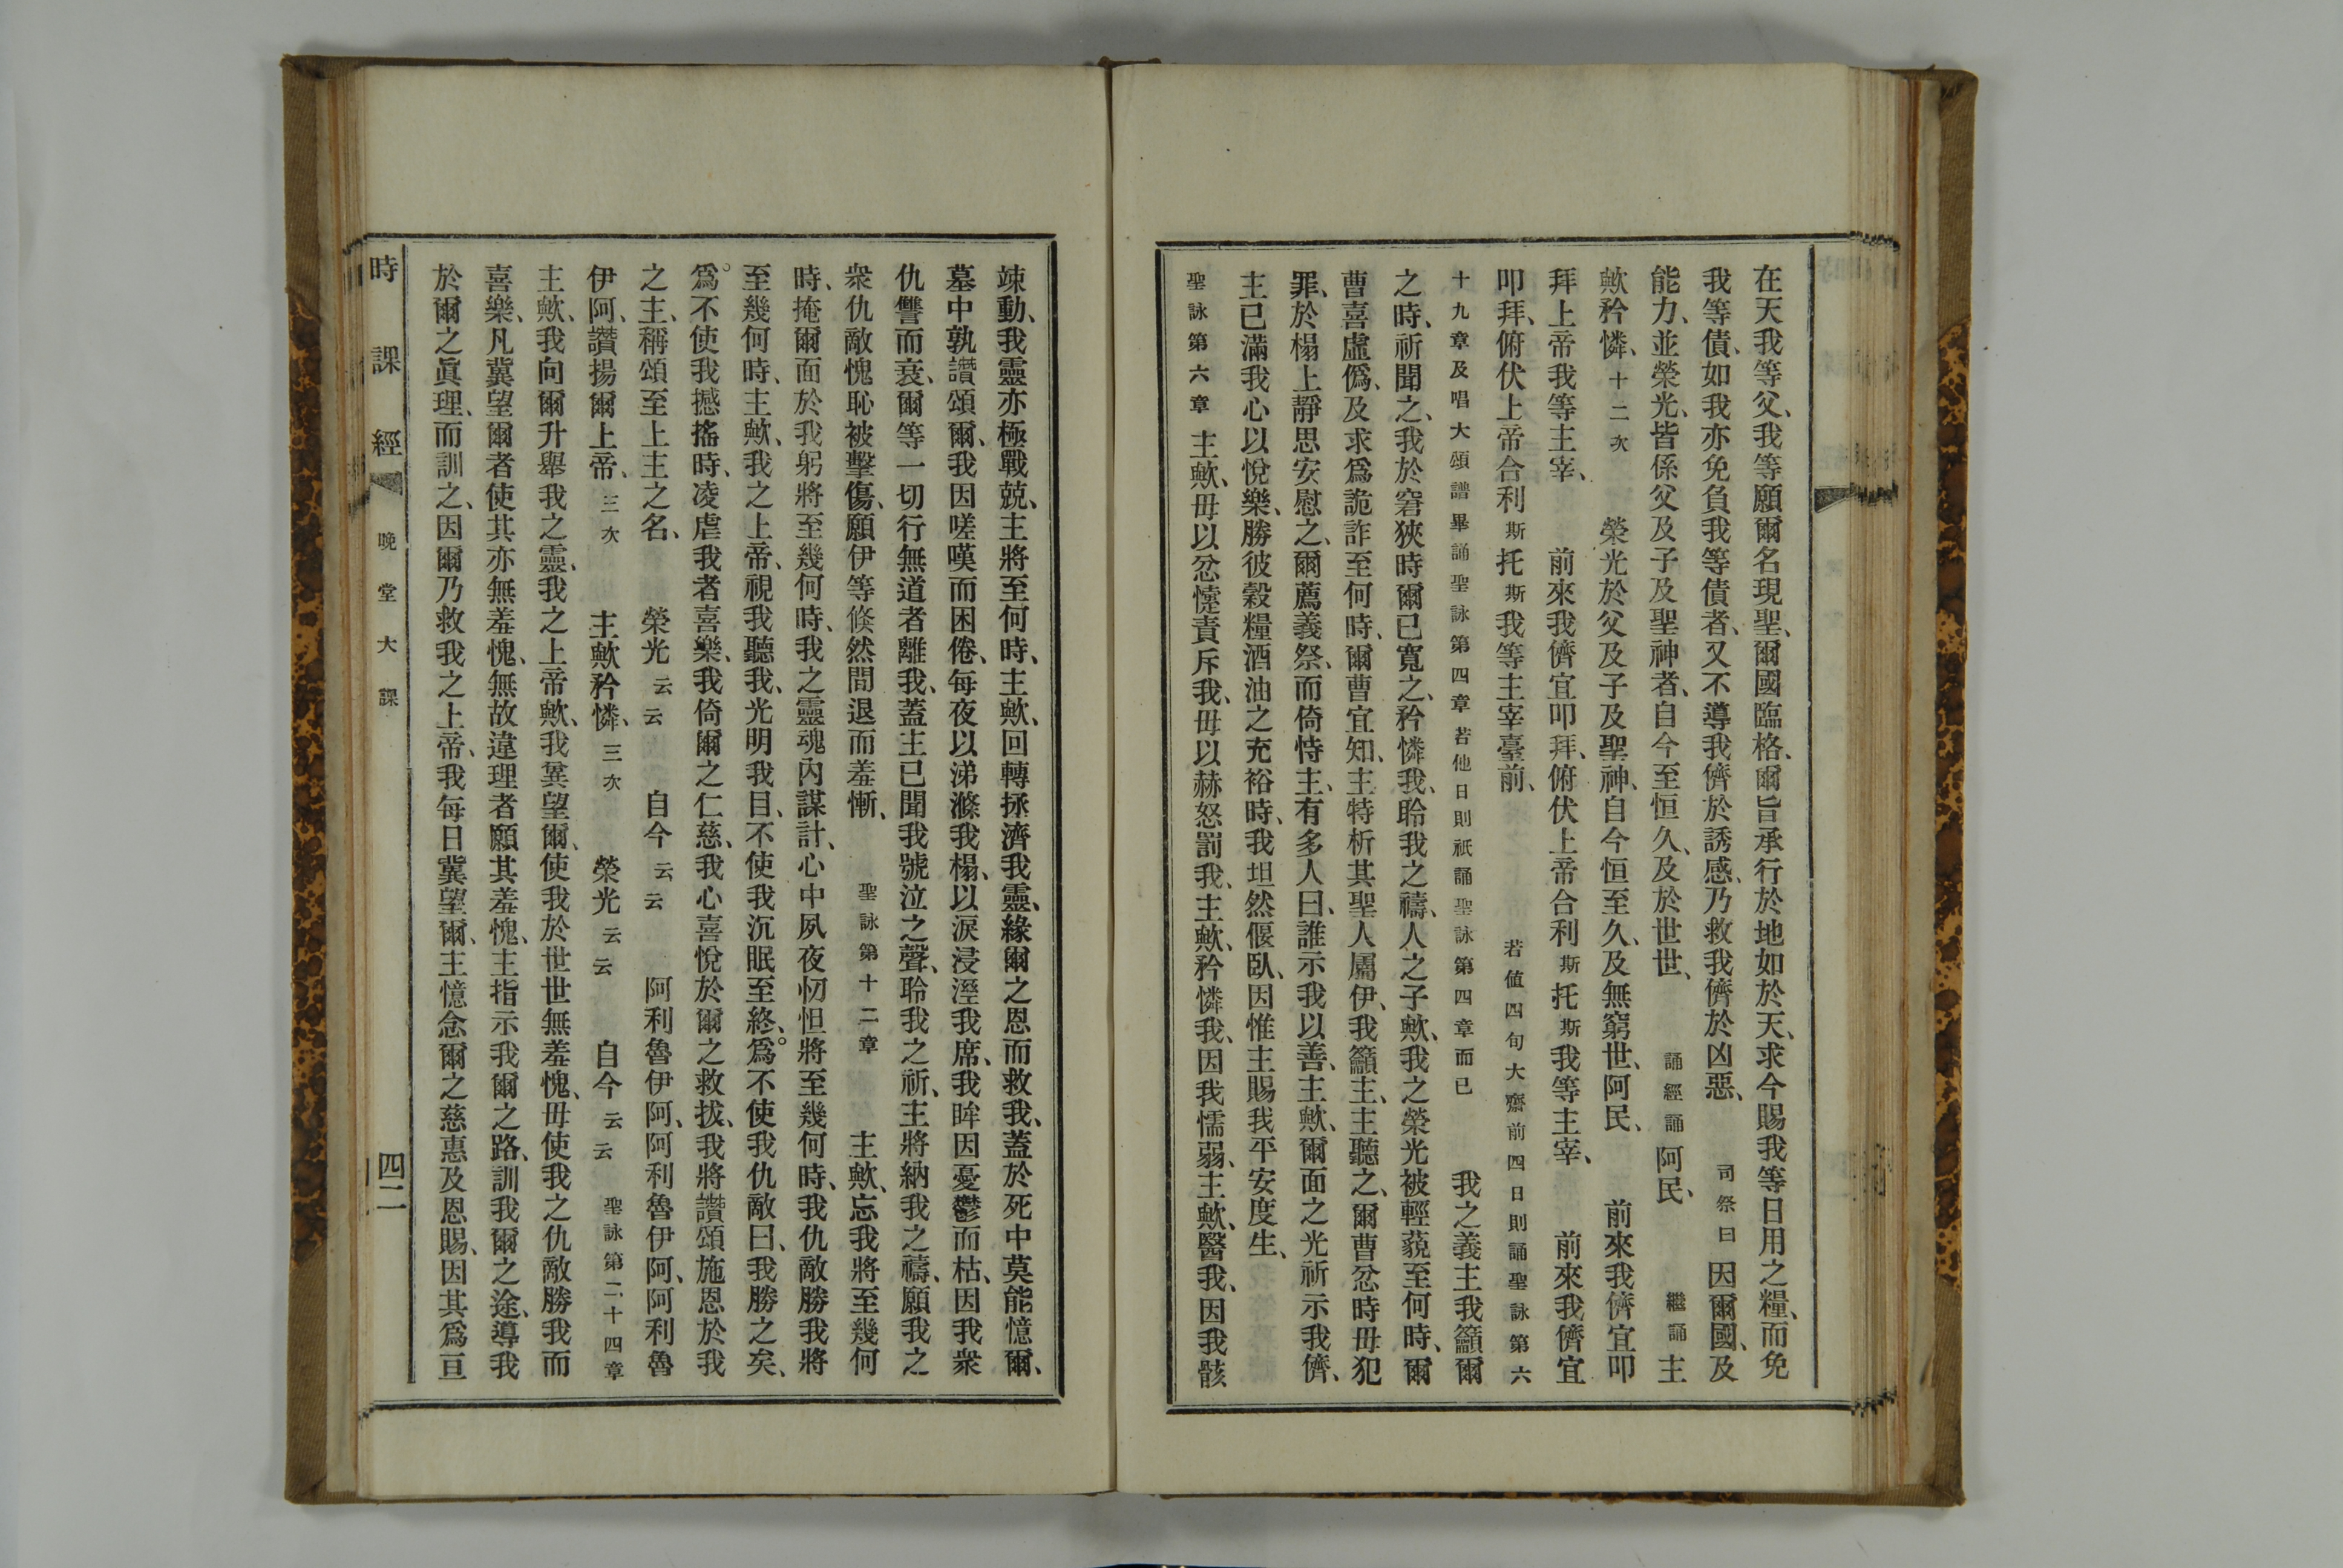 在天我等父、我等願爾名現聖、爾國臨格、爾旨承行於地如於天、求今賜我等日用之糧、而免
我等債、如我亦免負我等債者、又不導我儕於誘感、乃救我儕於凶惡、 司祭曰 因爾國、及
能力、並榮光、皆係父及子及聖神者、自今至恒久、及於世世、 誦經誦 阿民、 繼誦 主
歟矜憐、十二次 榮光於父及子及聖神、自今恒至久、及無窮世、阿民、 前來我儕宜叩
拜上帝我等主宰、 前來我儕宜叩拜、俯伏上帝合利斯托斯我等主宰、 前來我儕宜
叩拜、俯伏上帝合利斯托斯我等主宰臺前、 若値四旬大齋前四日則誦聖詠第六
十九章及唱大頌譜畢誦聖詠第四章若他日則祇誦聖詠第四章而已 我之義主我籲爾
之時、祈聞之、我於窘狹時爾已寬之、矜憐我、聆我之禱、人之子歟、我之榮光被輕藐至何時、爾
曹喜虛僞、及求爲詭詐至何時、爾曹宜知、主特析其聖人屬伊、我籲主、主聽之、爾曹忿時毋犯
罪、於榻上靜思安慰之、爾薦義祭、而倚恃主、有多人曰、誰示我以善、主歟、爾面之光祈示我儕、
主已滿我心以悅樂、勝彼穀糧酒油之充裕時、我坦然偃臥、因惟主賜我平安度生、
聖詠第六章 主歟、毋以忿憶責斥我、毋以赫怒罰我、主歟、矜憐我、因我懦弱、主歟、醫我、因我骸
竦動、我靈亦極戰兢、主將至何時、主歟、回轉拯濟我靈、緣爾之恩而救我、蓋於死中莫能憶爾、
墓中孰讚頌爾、我因嗟嘆而困倦、每夜以涕滌我榻、以淚浸溼我席、我眸因憂鬱而枯、因我衆
仇讐而衰、爾等一切行無道者離我、蓋主已聞我號泣之聲、聆我之祈、主將納我之禱、願我之
衆仇敵愧恥被擊傷、願伊等倏然間退而羞慚、 聖詠第十二章 主歟、忘我將至幾何
時、掩爾面於我躬將至幾何時、我之靈魂內謀計、心中夙夜忉怛將至幾何時、我仇敵勝我將
至幾何時、主歟、我之上帝、視我聽我、光明我目、不使我沉眠至終、爲不使我仇敵曰、我勝之矣、
爲不使我撼搖時、凌虐我者喜樂、我倚爾之仁慈、我心喜悅於爾之救拔、我將讚頌施恩於我
之主、稱頌至上主之名、 榮光云云 自今云云 阿利魯伊阿、阿利魯伊阿、阿利魯
伊阿、讚揚爾上帝、三次 主歟矜憐、三次 榮光云云 自今云云 聖詠第二十四章
主歟、我向爾升舉我之靈、我之上帝歟、我冀望爾、使我於世世無羞愧、毋使我之仇敵勝我而
喜樂、凡冀望爾者使其亦無羞愧、無故違理者願其羞愧、主指示我爾之路、訓我爾之途、導我
於爾之眞理、而訓之、因爾乃救我之上帝、我每日冀望爾、主憶念爾之慈惠及恩賜、因其爲亘
時課經 晚堂大課 四二